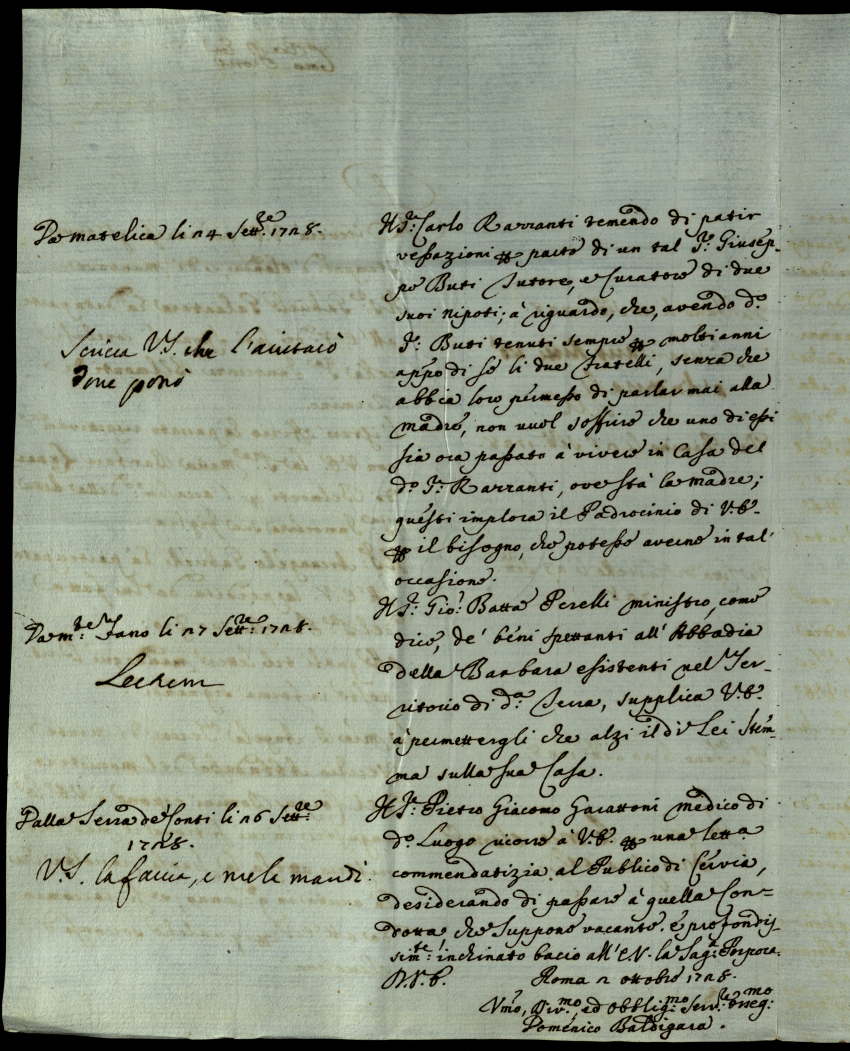 Da Matelica li 24 Sett.re 1728.
Scriva V.S. che l'aiutarò
dove potrò
Il S.r Carlo Razzanti temendo di patir
vessazioni per parte di un tal S.r Giusep-
pe Buti Tutore, e Curatore di due
suoi nipoti; à riguardo, che, avendo d.o
S.r Buti tenuti sempre per molti anni
appo di sé li due fratelli, senza che
abbia loro permesso di parlar mai alla
madre, non vuol soffrire che uno di essi
sia ora passato à vivere in Casa del
d.o S.r Razzanti, ove stà la madre;
questi implora il Padrocinio di V.E.
per il bisogno, che potesse averne in tal'
occasione.
Da M.te Fano li 27 Sett.re 1728.
Il S.r Gio: Batta Perelli ministro, come
dice, de' beni spettanti all' Abbadia
della Barbara esistenti nel Ter-
ritorio di d.a Terra, supplica V.E.
à permettergli che alzi il di Lei Stem-
ma sulla sua Casa.
Dalla Serra de' Conti li 26 Sett.re
1728.
V.S. la faccia, e me la mandi.
Il S.r Pietro Giacomo Garattoni medico di
d.o Luogo ricorre à V.E. per una lett.a
commendatizia al Publico di Cervia,
desiderando di passare à quella Con-
dotta che suppone vacante. e profondis-
sim.te inchinato bacio all' E.V. la Sag.a Porpora.
D.V.E. Roma 2 ottobre 1728.
Vmo, Div.mo, ed Obblig.mo Serv.re osseq.mo
Domenico Baldigara.